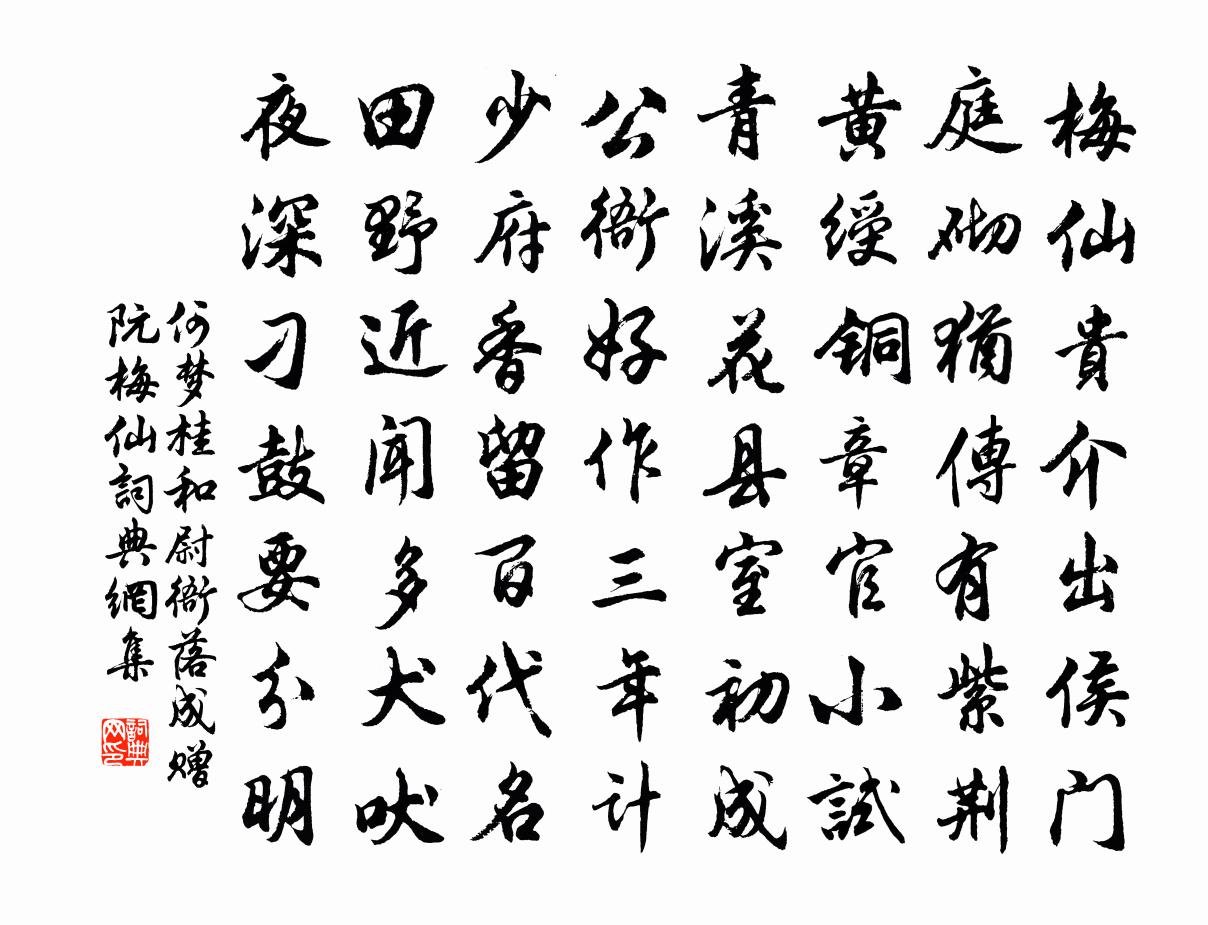 梅仙貴介出侯门
庭砌猶傳有紫荆
黄綬銅章官小試
青溪花县室初成
公衙好作三年计
少府香留百代名
田野近闻多犬吠
夜深刁鼓要分明
何梦桂和尉衙落成赠
阮梅仙詞典網集
詞典网印